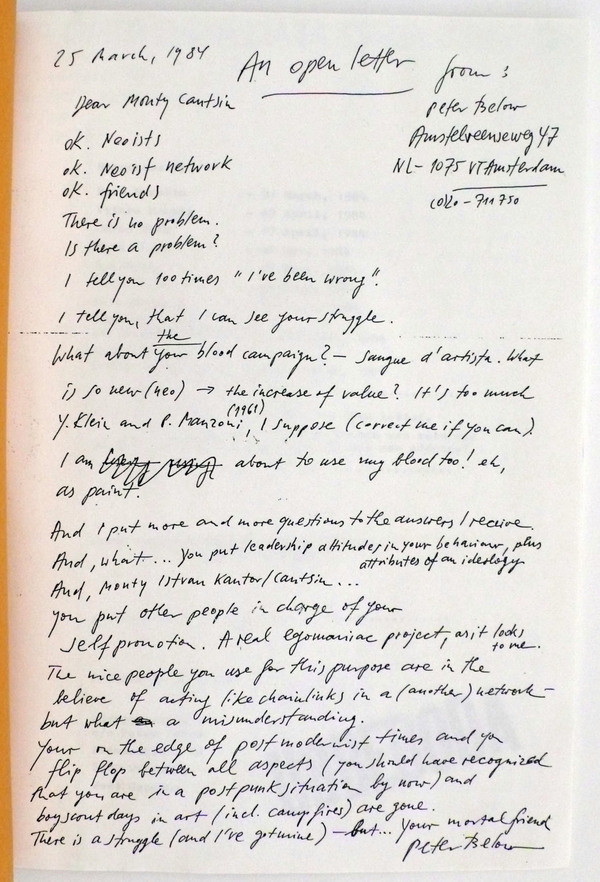 25 March, 1984
An open letter
from :
Peter Below
Amstelveenseweg 47
NL - 1075 VT Amsterdam
(0)20 - 711 750
Dear Monty Cantsin
OK. Neoists
OK. Neoist network
OK. friends
There is no problem.
Is there a problem?
I tell you 100 times "I've been wrong".
I tell you, that I can see your struggle.
the
What about your blood campaign? - sangue d'artista. What
is so new (neo) → the increase of value? It's too much
(1961)
Y. Klein and P. Manzoni, I suppose (correct me if you can).
I am about to use my blood too! eh,
as paint.
And I put more and more questions to the answers I receive.
And, what... you put leadership attitudes in your behaviour, plus
attributes of an ideology
And, Monty Istvan Kantor/Cantsin...
you put other people in charge of your
self promotion. A real egomaniac project, as it looks
to me.
The nice people you use for this purpose are in the
believe of acting like chainlinks in a (another) network -
but what a misunderstanding.
Your on the edge of post modernist times and you
flip flop between all aspects (you should have recognized
that you are in a postpunk situation by now) and
boyscout days in art (incl. campfires) are gone.
There is a struggle (and I've got mine) - but... your mortal friend
Peter Below